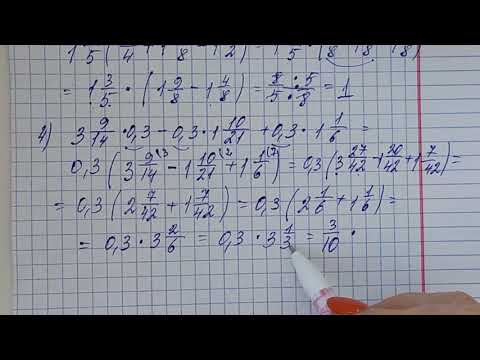 = 1 3/5 · (1 9/8 − 1 4/8) = 8/5 · 5/8 = 1
4) 3 9/14 · 0,3 − 0,3 · 1 10/21 + 0,3 · 1 1/6 =
0,3 (3 9/14 (3 − 1 10/21 (2 + 1 1/6 (7) = 0,3 (3 27/42 − 1 20/42 + 1 7/42) =
= 0,3 (2 7/42 + 1 7/42) = 0,3 (2 1/6 + 1 1/6) =
= 0,3 · 3 2/6 = 0,3 · 3 1/3 = 3/10 ·